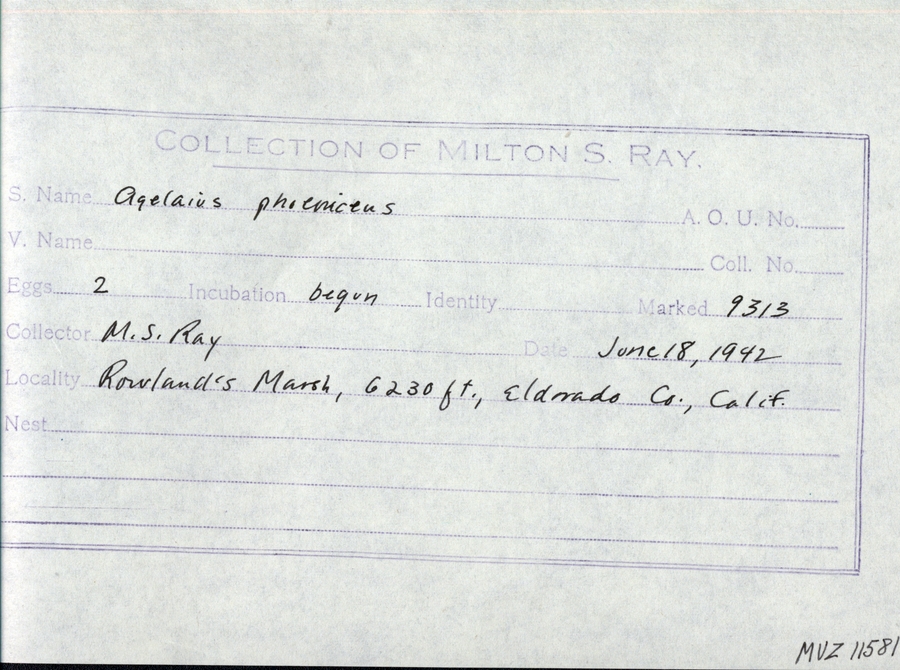 COLLECTION OF MILTON S. RAY.
S. Name Agelaius phoeniceus A. O. U. No.
V. Name Coll. No.
Eggs 2 Incubation begun Identity Marked 9313
Collector M.S. Ray Date June 18, 1942
Locality Rowland's Marsh, 6230 ft., Eldorado Co., Calif.
Nest
MVZ 11581